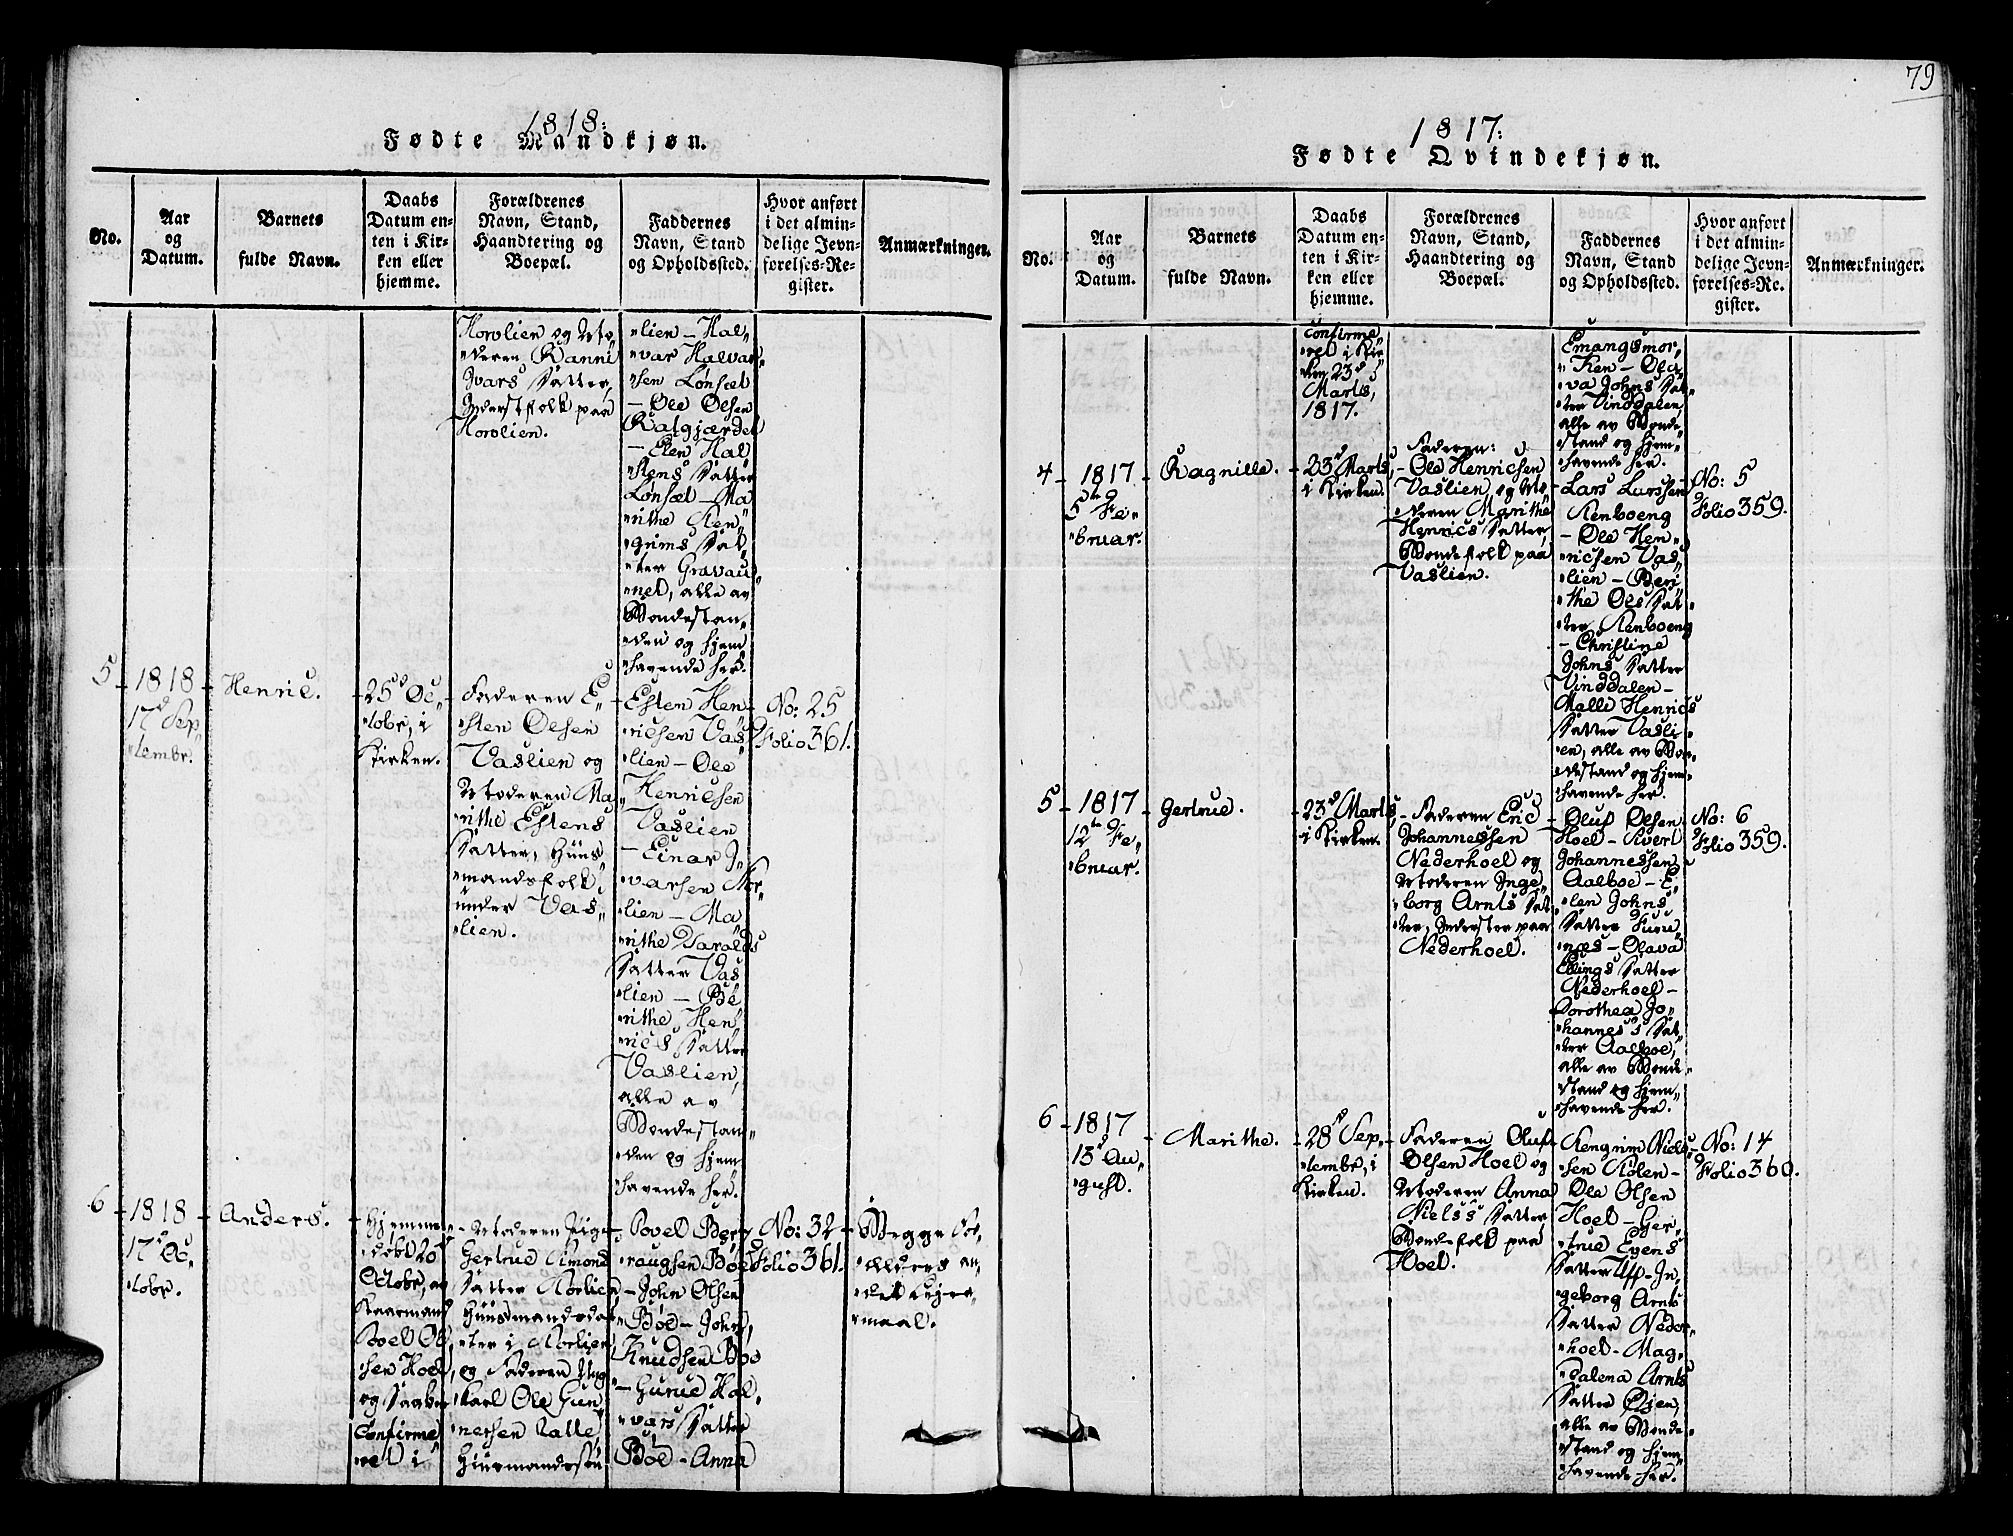 1818:
Fødte Mandkjøn.
No.
Aar
og
Datum.
Barnets
fulde Navn.
Daabs
Datum en-
ten i Kir-
ken eller
hjemme.
Forældrenes
Navn, Stand,
Haandtering og
Boepæl.
Faddernes
Navn, Stand
og Opholdssted.
Hvor anført
i det almin-
delige Jevn-
førelses-Re-
gister.
Anmærkninger.
Horvlien og Mo„
„deren Ranni
Ivars Datter,
Inderstfolk paa
Horvlien.
„lien – Hal„
„var Halvar„
„sen Lønset
– Ole Olsen
Ralgjærdet
– Elen Hal
„stens Datter
Lønset – Ma
„rithe Ren„
„grims Dat„
„ter Gravau„
„net, alle av
Bondestan„
„den og hjem
„havende her.
5 – 1818 –
17d Sep„
„tembr.
Henric.
– 25d Oc„
„tobr, i
Kirken.
– Faderen E„
„sten Olsen
Vaslien og
Moderen Ma„
„rithe Estens
Datter, Huus„
„mandsfolk
under Vas„
„lien.
– Esten Hen„
„ricsen Vas„
„lien – Ole
Henricsen
Vaslien
– Einar I„
„varsen Hor„
„lien – Ma„
„rithe Haralds
Datter Vas
„lien – Be„
„rithe Hen„
„rics Datter
Vaslien,
alle av
Bondestan„
„den og hjem
„havende her.
No: 25
Folio 361.
6 – 1818 –
17d Oc„
„tobr.
Anders.
– Hjemme„
„døbt 20d
Octobr, av
Skaarmand
Povel Ol„
„sen Hoel,
og Daaben
Confirme
„ret i
– Moderen Pige
Gertrud Simons
Datter Norlien,
Huusmandsdat„
„ter i Norlien,
og Faderen Ung„
„karl Ole Gun„
„nersen Talle,
Huusmandssøn
– Povel Bør„
„raugsen Bøe
– John Olsen
Bøe – John
Knudsen Bøe
– Guru Hal„
„vars Datter
Bøe – Anna
No: 32
Folio 361.
– Begge For„
„ældres an„
„det Leier„
„maal.
79
1817:
Fødte Qvindekjøn.
No.
Aar
og
Datum.
Barnets
fulde Navn.
Daabs
Datum en-
ten i Kir-
ken eller
hjemme.
Forældrenes
Navn, Stand,
Haandtering og
Boepæl.
Faddernes
Navn, Stand
og Opholdssted.
Hvor anført
i det almin-
delige Jevn-
førelses-Re-
gister.
Anmærkninger.
Confirme„
„ret i Kir
„ken 23d
Marts,
1817.
Emangsmor„
„ken – Ola„
va Johns Dat„
„ter Vinddalen,
alle av Bonde
„stand og hjem„
„havende her.
4 – 1817 –
5te Fe„
„bruar.
Ragnille.
– 23d Marts,
i Kirken.
Faderen:
– Ole Henricsen
Vaslien, og Mo„
„deren Marithe
Henrics Datter,
Bondefolk paa
Vaslien.
– Lars Larssen
Renboeng
– Ole Hen„
„ricsen Vas„
„lien – Beri
„the Ols Dat„
„ter Renboeng
– Christine
Johns Datter
Vinddalen –
Malli Henrics
Datter Vasli„
„en, alle av Bon„
„destand og hjem„
„havende her.
No: 5
Folio 359.
5 – 1817 –
12te Fe„
„bruar.
Gertrue.
– 23d Marts,
i Kirken.
– Faderen Eric
Johannessen
Nederhoel og
Moderen Inge„
„borg Arnts Dat„
„ter, Inderster paa
Nederhoel.
– Oluf Olsen
Hoel – Sivert
Johannessen
Aalboe – E„
„len Johns
Datter Furu„
„næs – Olava
Ellings Datter
Nederhoel –
Dorothea Jo„
„hanness Dat„
„ter Aalboe,
alle av Bonde„
„stand og hjem„
„havende her.
No: 6
Folio 359.
6 – 1817
13d Au„
„gust.
– Marithe.
– 28d Sep„
„tembr, i
Kirken.
– Faderen Oluf
Olsen Hoel og
Moderen Anna
Nielss Datter
Bondefolk paa
Hoel.
– Rengrim Niels„
„sen Aalen –
Ole Olsen
Hoel – Ger„
„true Eyens
Datter Uff – In„
geborg Arnts
Datter Neder„
„hoel – Mag„
„dalena Arnts
Datter Øien,
alle av Bonde„
„stand og hjem„
„havende her.
– No: 14
Folio 360.